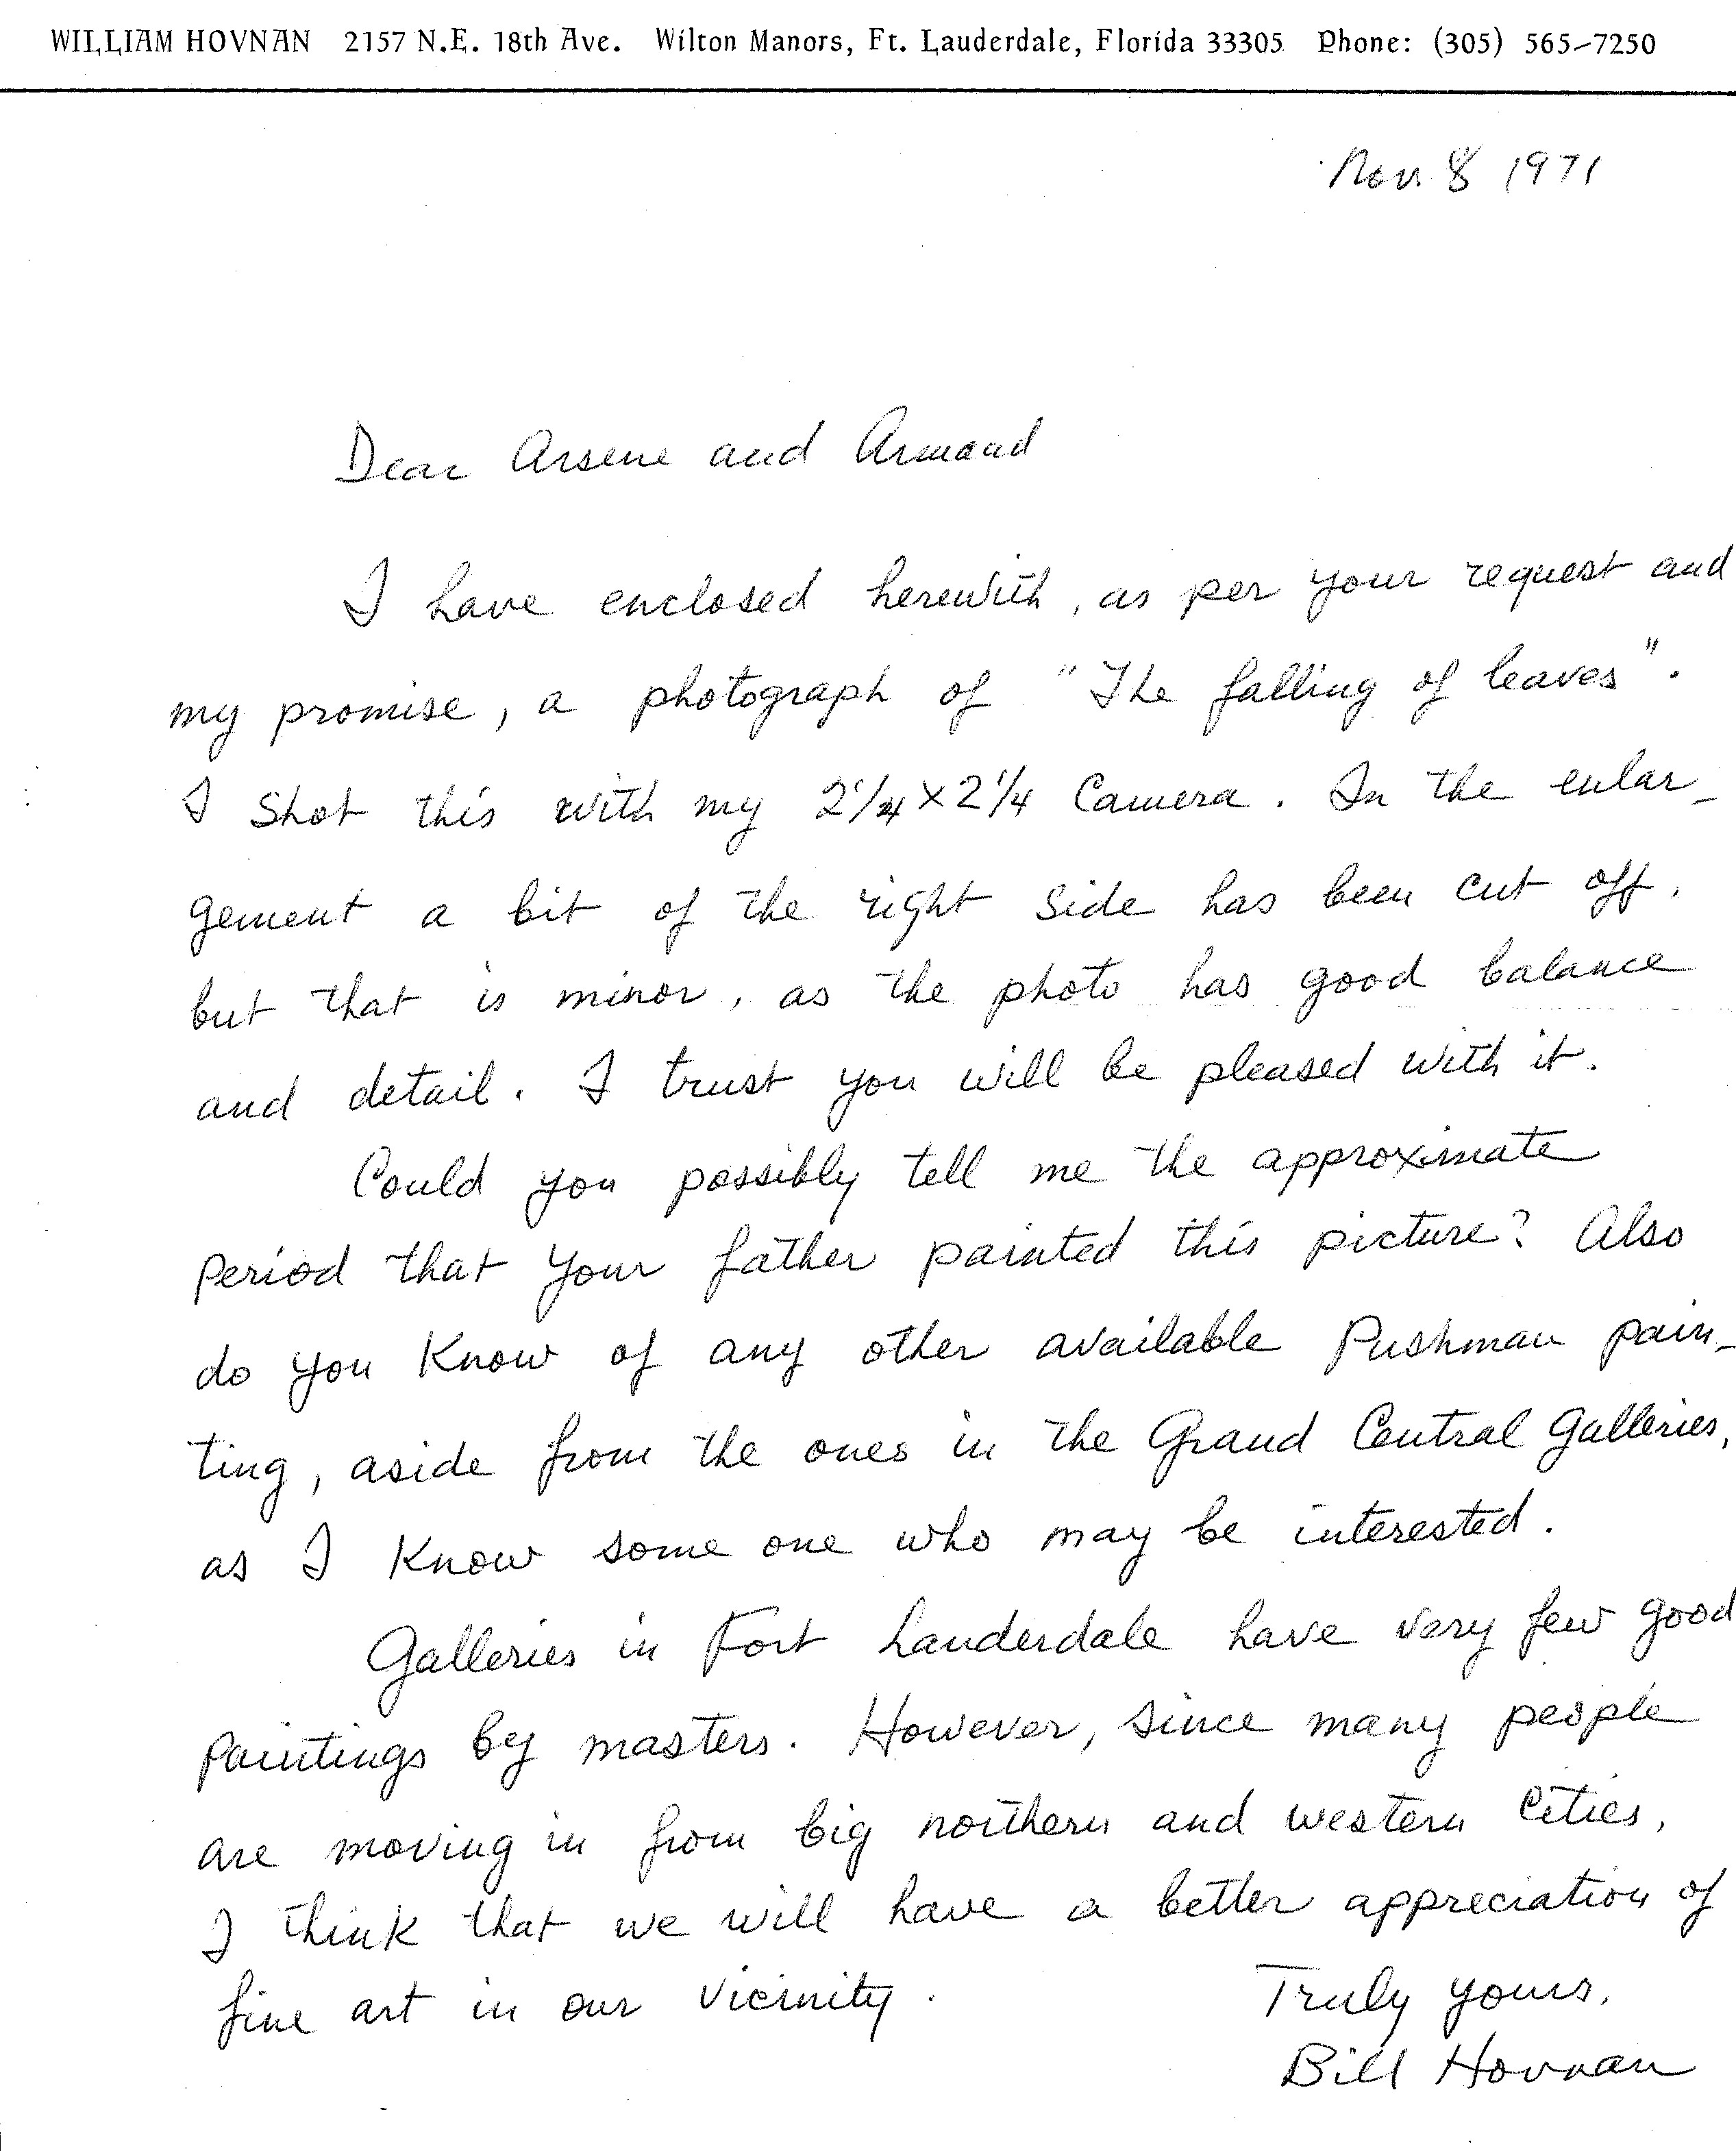 WILLIAM HOVNAN 2157 N.E. 18th Ave. Wilton Manors, Ft. Lauderdale, Florida 33305 Phone: (305) 565-7250
Nov. 8 1971
Dear Arsene and Armand
I have enclosed herewith, as per your request and
my promise, a photograph of "The falling of leaves".
I shot this with my 2 1/4 x 2 1/4 Camera. In the enlar-
gement a bit of the right side has been cut off,
but that is minor, as the photo has good balance
and detail. I trust you will be pleased with it.
Could you possibly tell me the approximate
period that your father painted this picture? Also
do you know of any other available Pushman pain-
ting, aside from the ones in the Grand Central Galleries,
as I know some one who may be interested.
Galleries in Fort Lauderdale have very few good
paintings by masters. However, since many people
are moving in from big northern and western cities,
I think that we will have a better appreciation of
fine art in our vicinity.
Truly yours,
Bill Hovnan